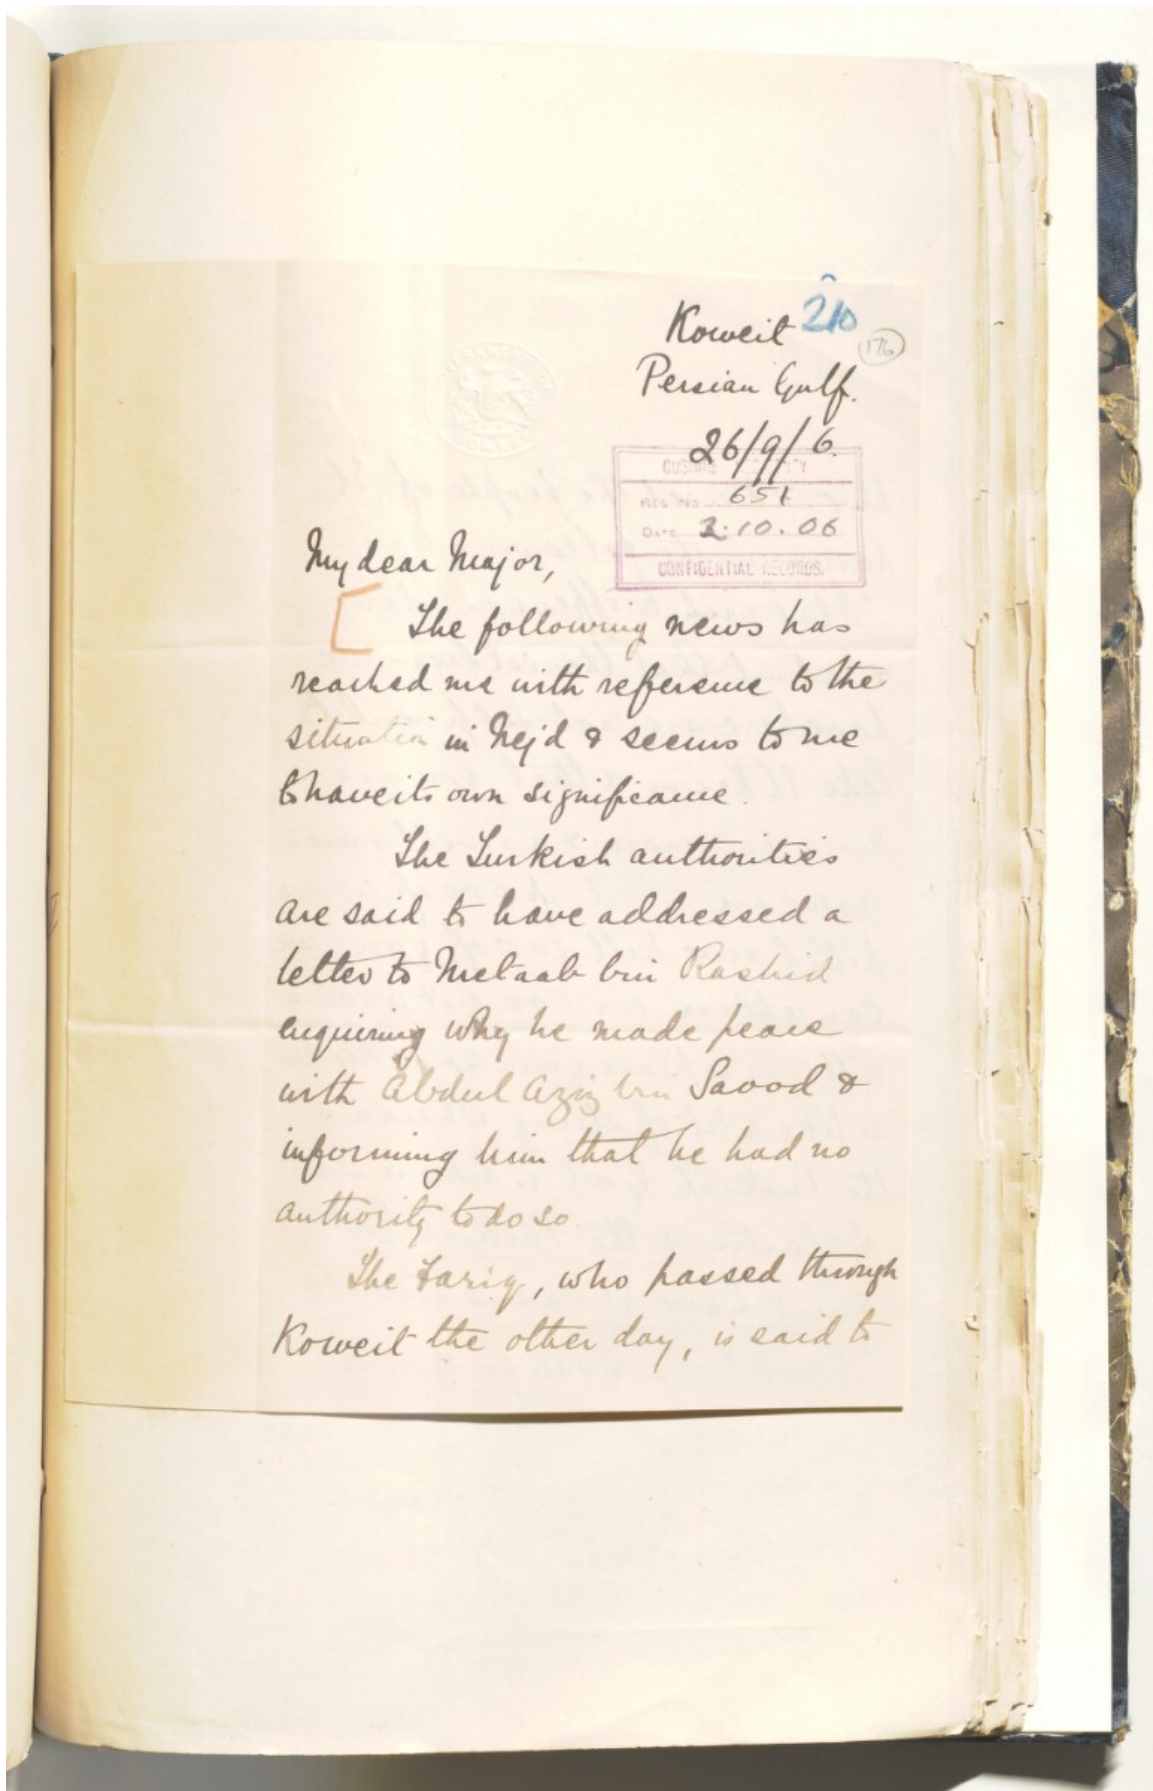 Koweit 210
176
Persian Gulf.
26/9/6.
BUSHIRE
REG. No. 651
DATE 2.10.06
CONFIDENTIAL RECORDS.
My dear Major,
[ The following news has
reached me with reference to the
situation in Nejd & seems to me
to have its own significance.
The Turkish authorities
are said to have addressed a
letter to Metaab bin Rashid
enquiring why he made peace
with Abdul Aziz bin Saood &
informing him that he had no
authority to do so.
The Fariq, who passed through
Koweit the other day, is said to